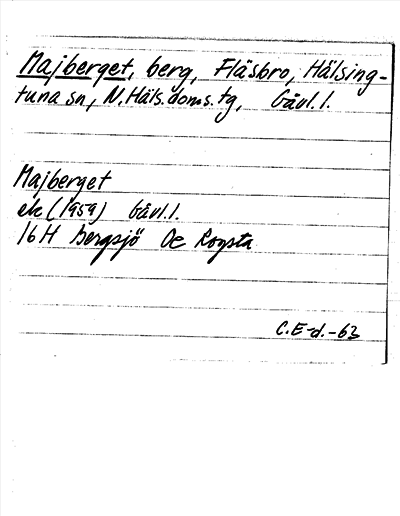 Majberget, berg, Fläsbro, Hälsing-
tuna sn, N. Häls. doms. tg, Gävl. l.
Majberget
ek (1959) Gävl. l.
16H Bergsjö Oe Rogsta
C.E-d.-63